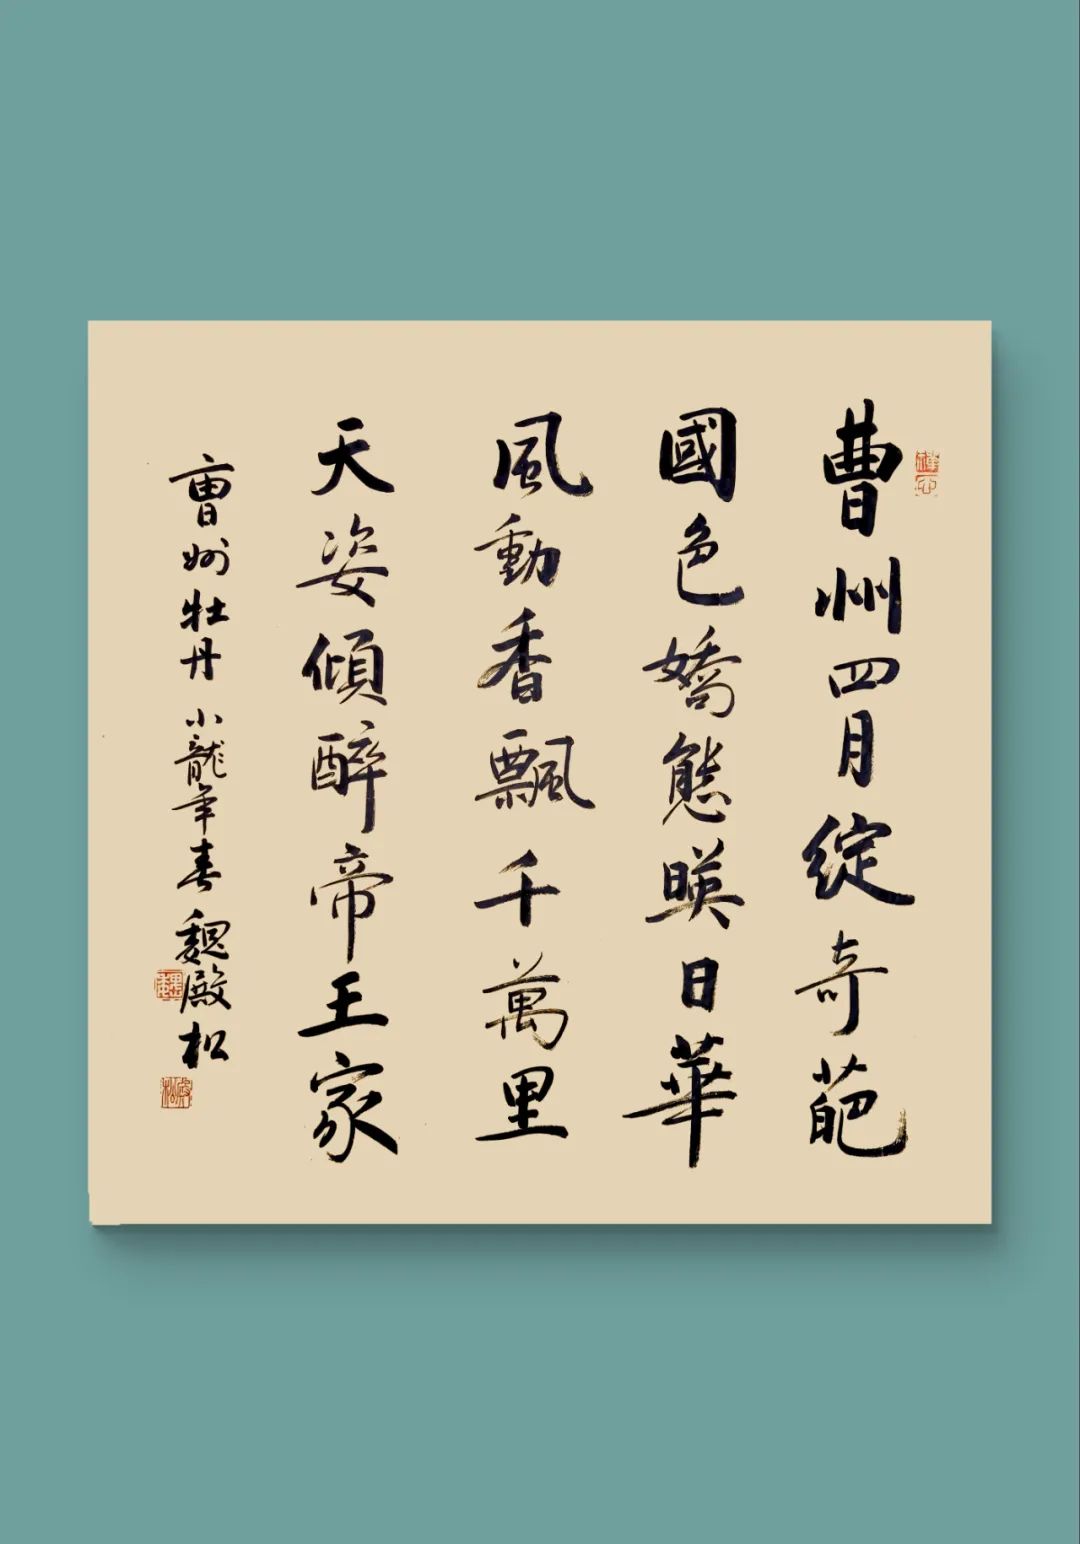 曹州四月綻奇葩
國色嬌態暎日華
風動香飄千萬里
天姿傾醉帝王家
曹州牡丹 小龍年春 魏殿松